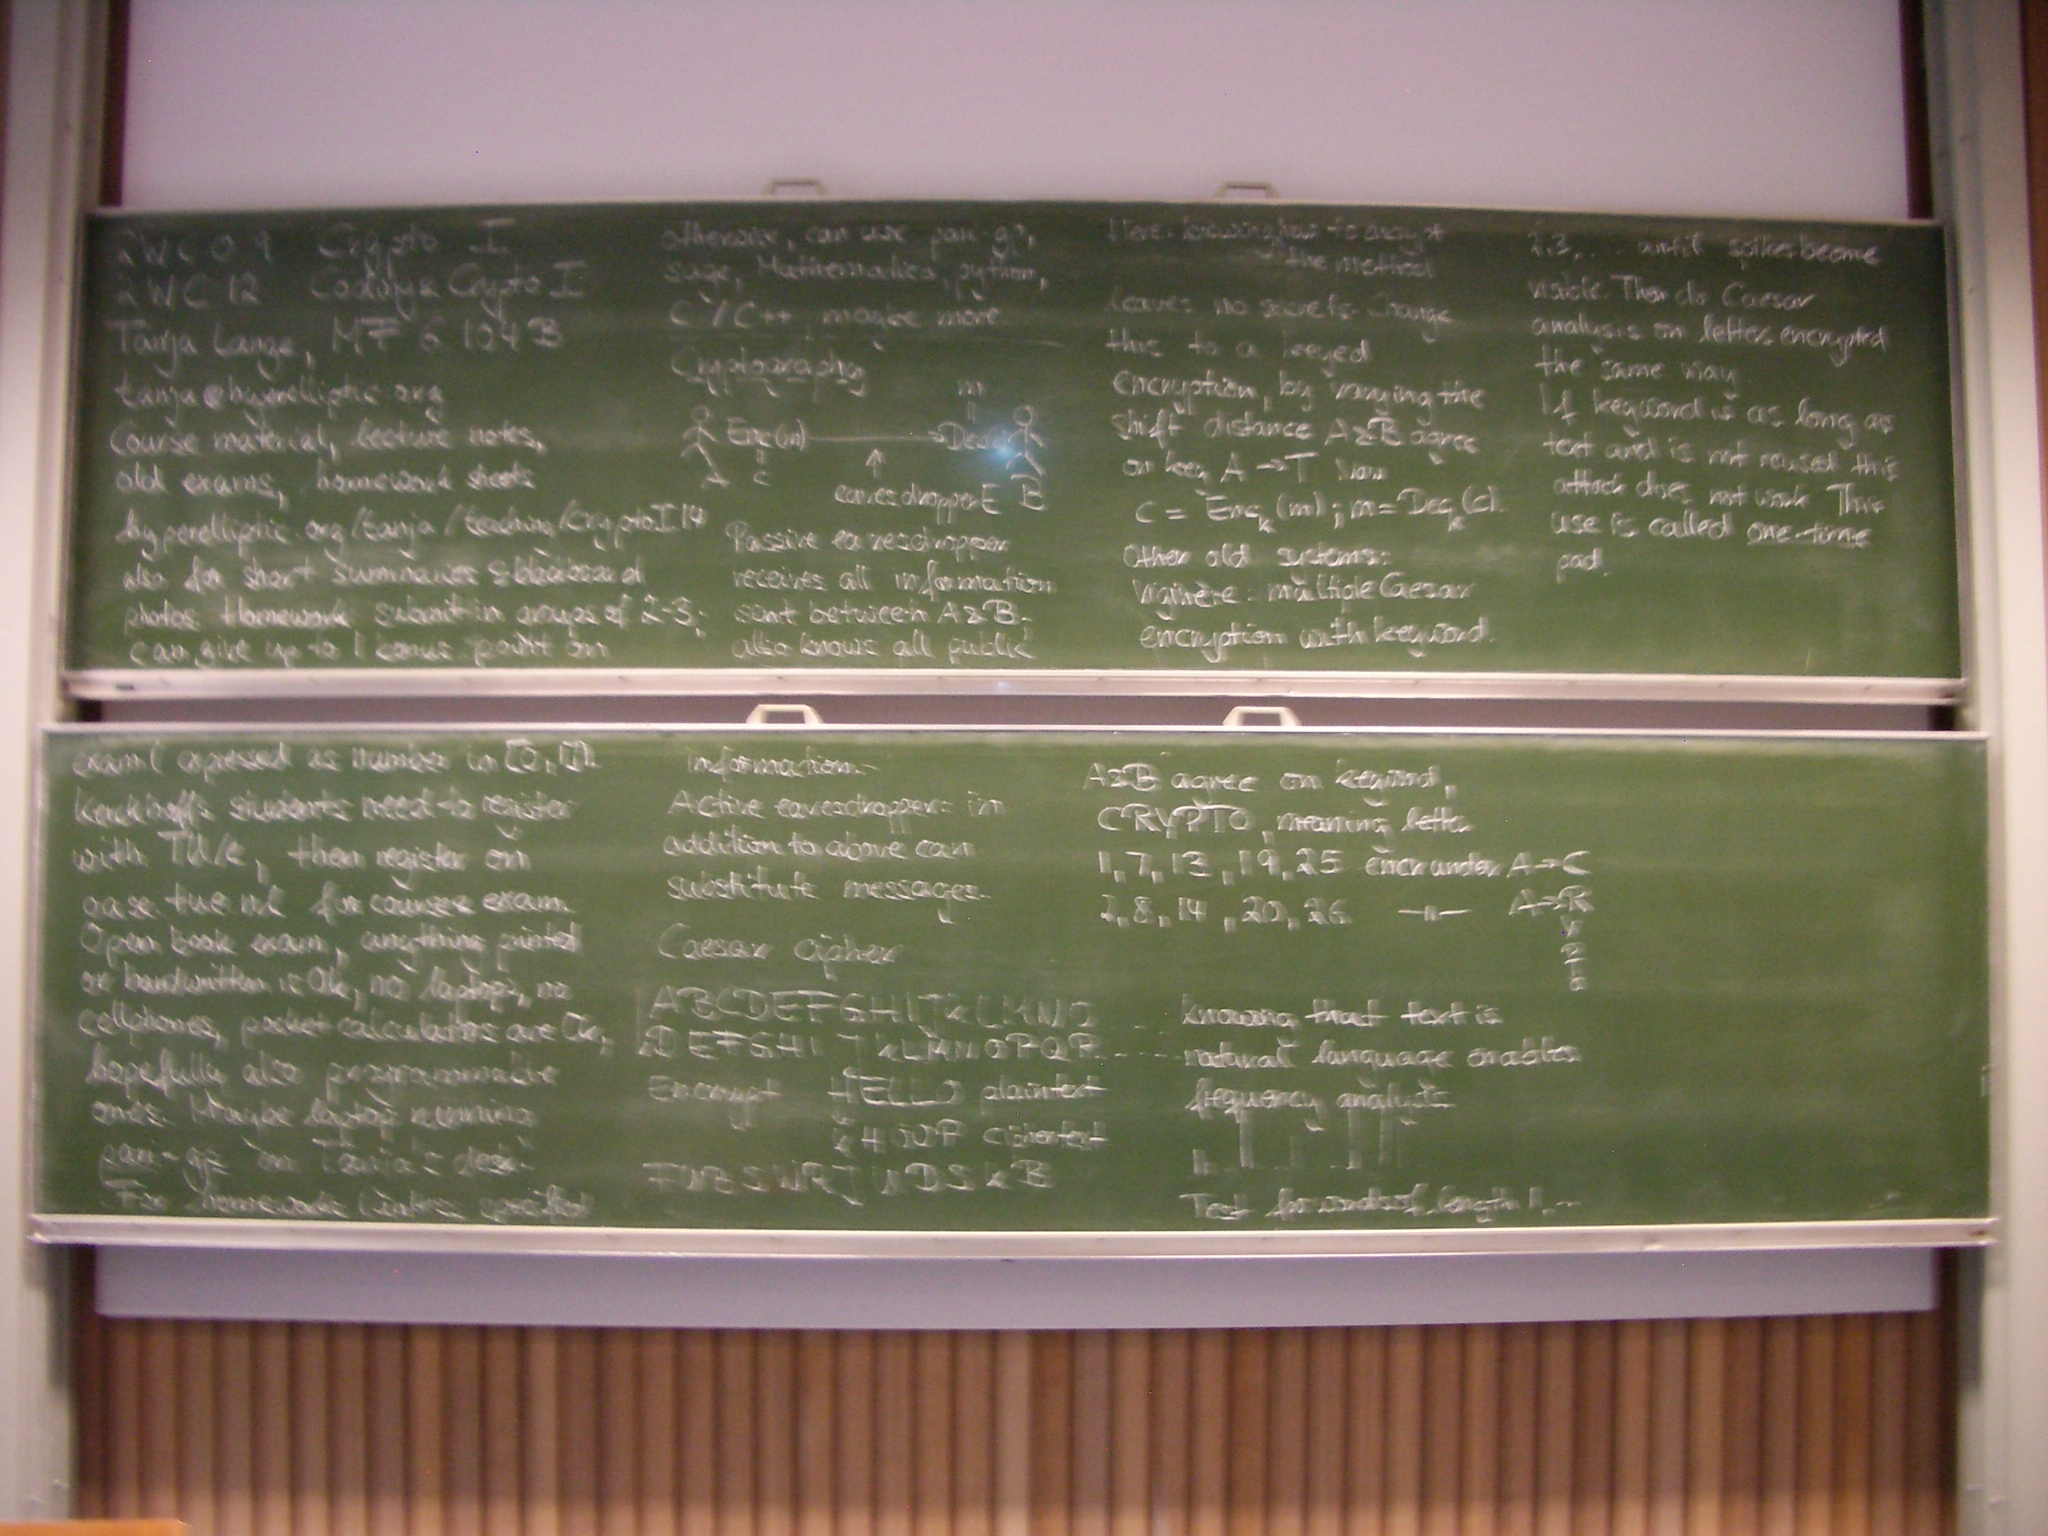 2WC09 Crypto I
2WC12 Coding & Crypto I
Tanja Lange, MF 6.104B
tanja@hyperelliptic.org
Course material, lecture notes,
old exams, homework sheets
hyperelliptic.org/tanja/teaching/cryptoI14
also for short summaries & blackboard
photos. Homework submit in groups of 2-3;
can give up to 1 bonus point on
exam (expressed as number in [0,1]).
Kerckhoffs students need to register
with TU/e, then register on
oase.tue.nl for course & exam.
Open book exam, anything printed
or handwritten is Ok, no laptops, no
cellphones, pocket calculators are Ok,
hopefully also programmable
ones. Maybe laptop running
pari-gp on Tanja's desk.
For homework (unless specified
otherwise, can use pari-gp,
sage, Mathematica, python,
C/C++ maybe more
Cryptography
m
Enc(m)
c
A
eavesdropper E B
Passive eavesdropper
receives all information
sent between A&B.
also knows all public
information.
Active eavesdropper: in
addition to above can
substitute messages.
Caesar cipher
ABCDEFGHIJKLMNO ...
DEFGHIJKLMNOPQR ....
Encrypt HELLO plaintext
KHOOR ciphertext
Here: knowing how to encrypt
the method
leaves no secrets. Change
this to a keyed
encryption, by varying the
shift distance A&B agree
on key A→T Now
c = Enc_k(m); m = Dec_k(c).
Other old systems:
Viginère: multiple Caesar
encryption with keyword.
A&B agree on keyword,
CRYPTO, meaning letter
1, 7, 13, 19, 25 encr under A→C
2, 8, 14, 20, 26 —"— A→R
Y
P
T
O
Knowing that text is
natural language enables
frequency analysis.
Test for words of length 1, ...
2,3,... until spikes become
visible. Then do Caesar
analysis on letters encrypted
the same way
If keyword is as long as
text and is not reused this
attack does not work This
use is called one-time
pad.